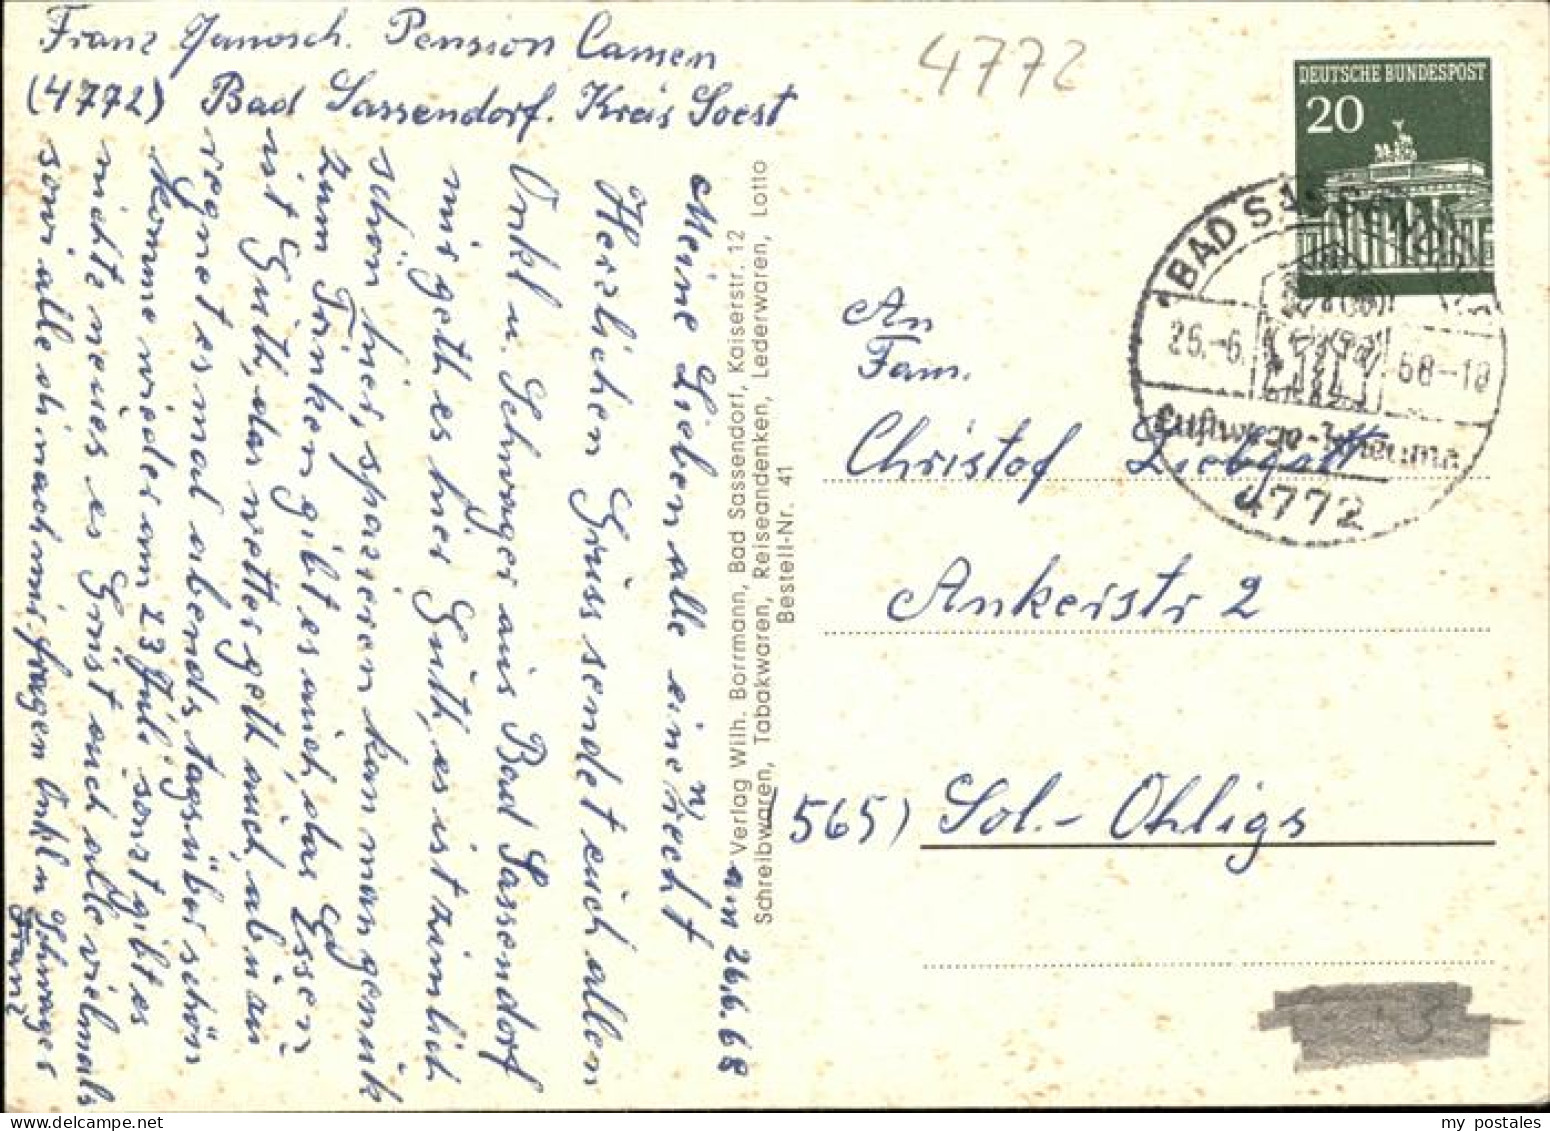 Franz Janosch. Pension Camen
(4772) Bad Sassendorf. Kreis Soest
4772
DEUTSCHE BUNDESPOST
20
BAD SASSENDORF
26.-6. 68-18
Luftwege-Rheuma
4772
am 26.6.68
Meine Lieben alle einerecht n)
Herzlichen Grüss sendet euch allen
Onkl u. Schwager aus Bad Sassendorf
mir geth es hier Guth, es ist zimlich
schön hier, spazieren kan man genük
zum Trinken gibt es auch, das Essen
ist Guth, das wetter geth auch, ab u an
regnet es mal abends tagsüber schön
Komme wieder am 23 Juli sonzt gibt es
nichts neues es Grüst euch alle vielmals
sowi alle di nach mir fragen Onkl u Schwager
Franz
Verlag Wilh. Borrmann, Bad Sassendorf, Kaiserstr. 12
Schreibwaren, Tabakwaren, Reiseandenken, Lederwaren, Lotto
Bestell-Nr. 41
An
Fam.
Christof Liebgott
Ankerstr 2
(565) Sol.- Ohligs
my postales